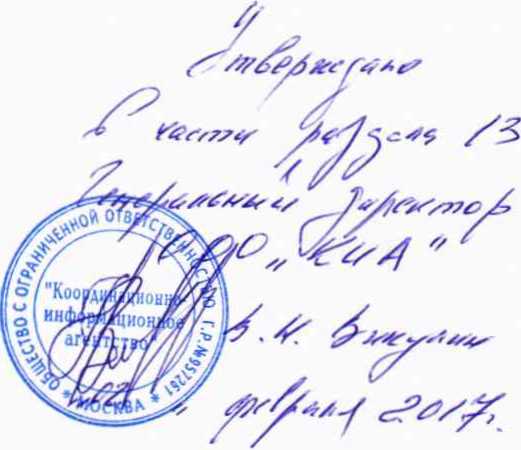 "Утверждаю
в части раздела 13
Генеральный директор
ООО „КИА"
В.И. Викулин
" февраля 2017г.
ОБЩЕСТВО С ОГРАНИЧЕННОЙ ОТВЕТСТВЕННОСТЬЮ Г.Р.№957261 * МОСКВА *
"Координационно-
информационное
агентство"